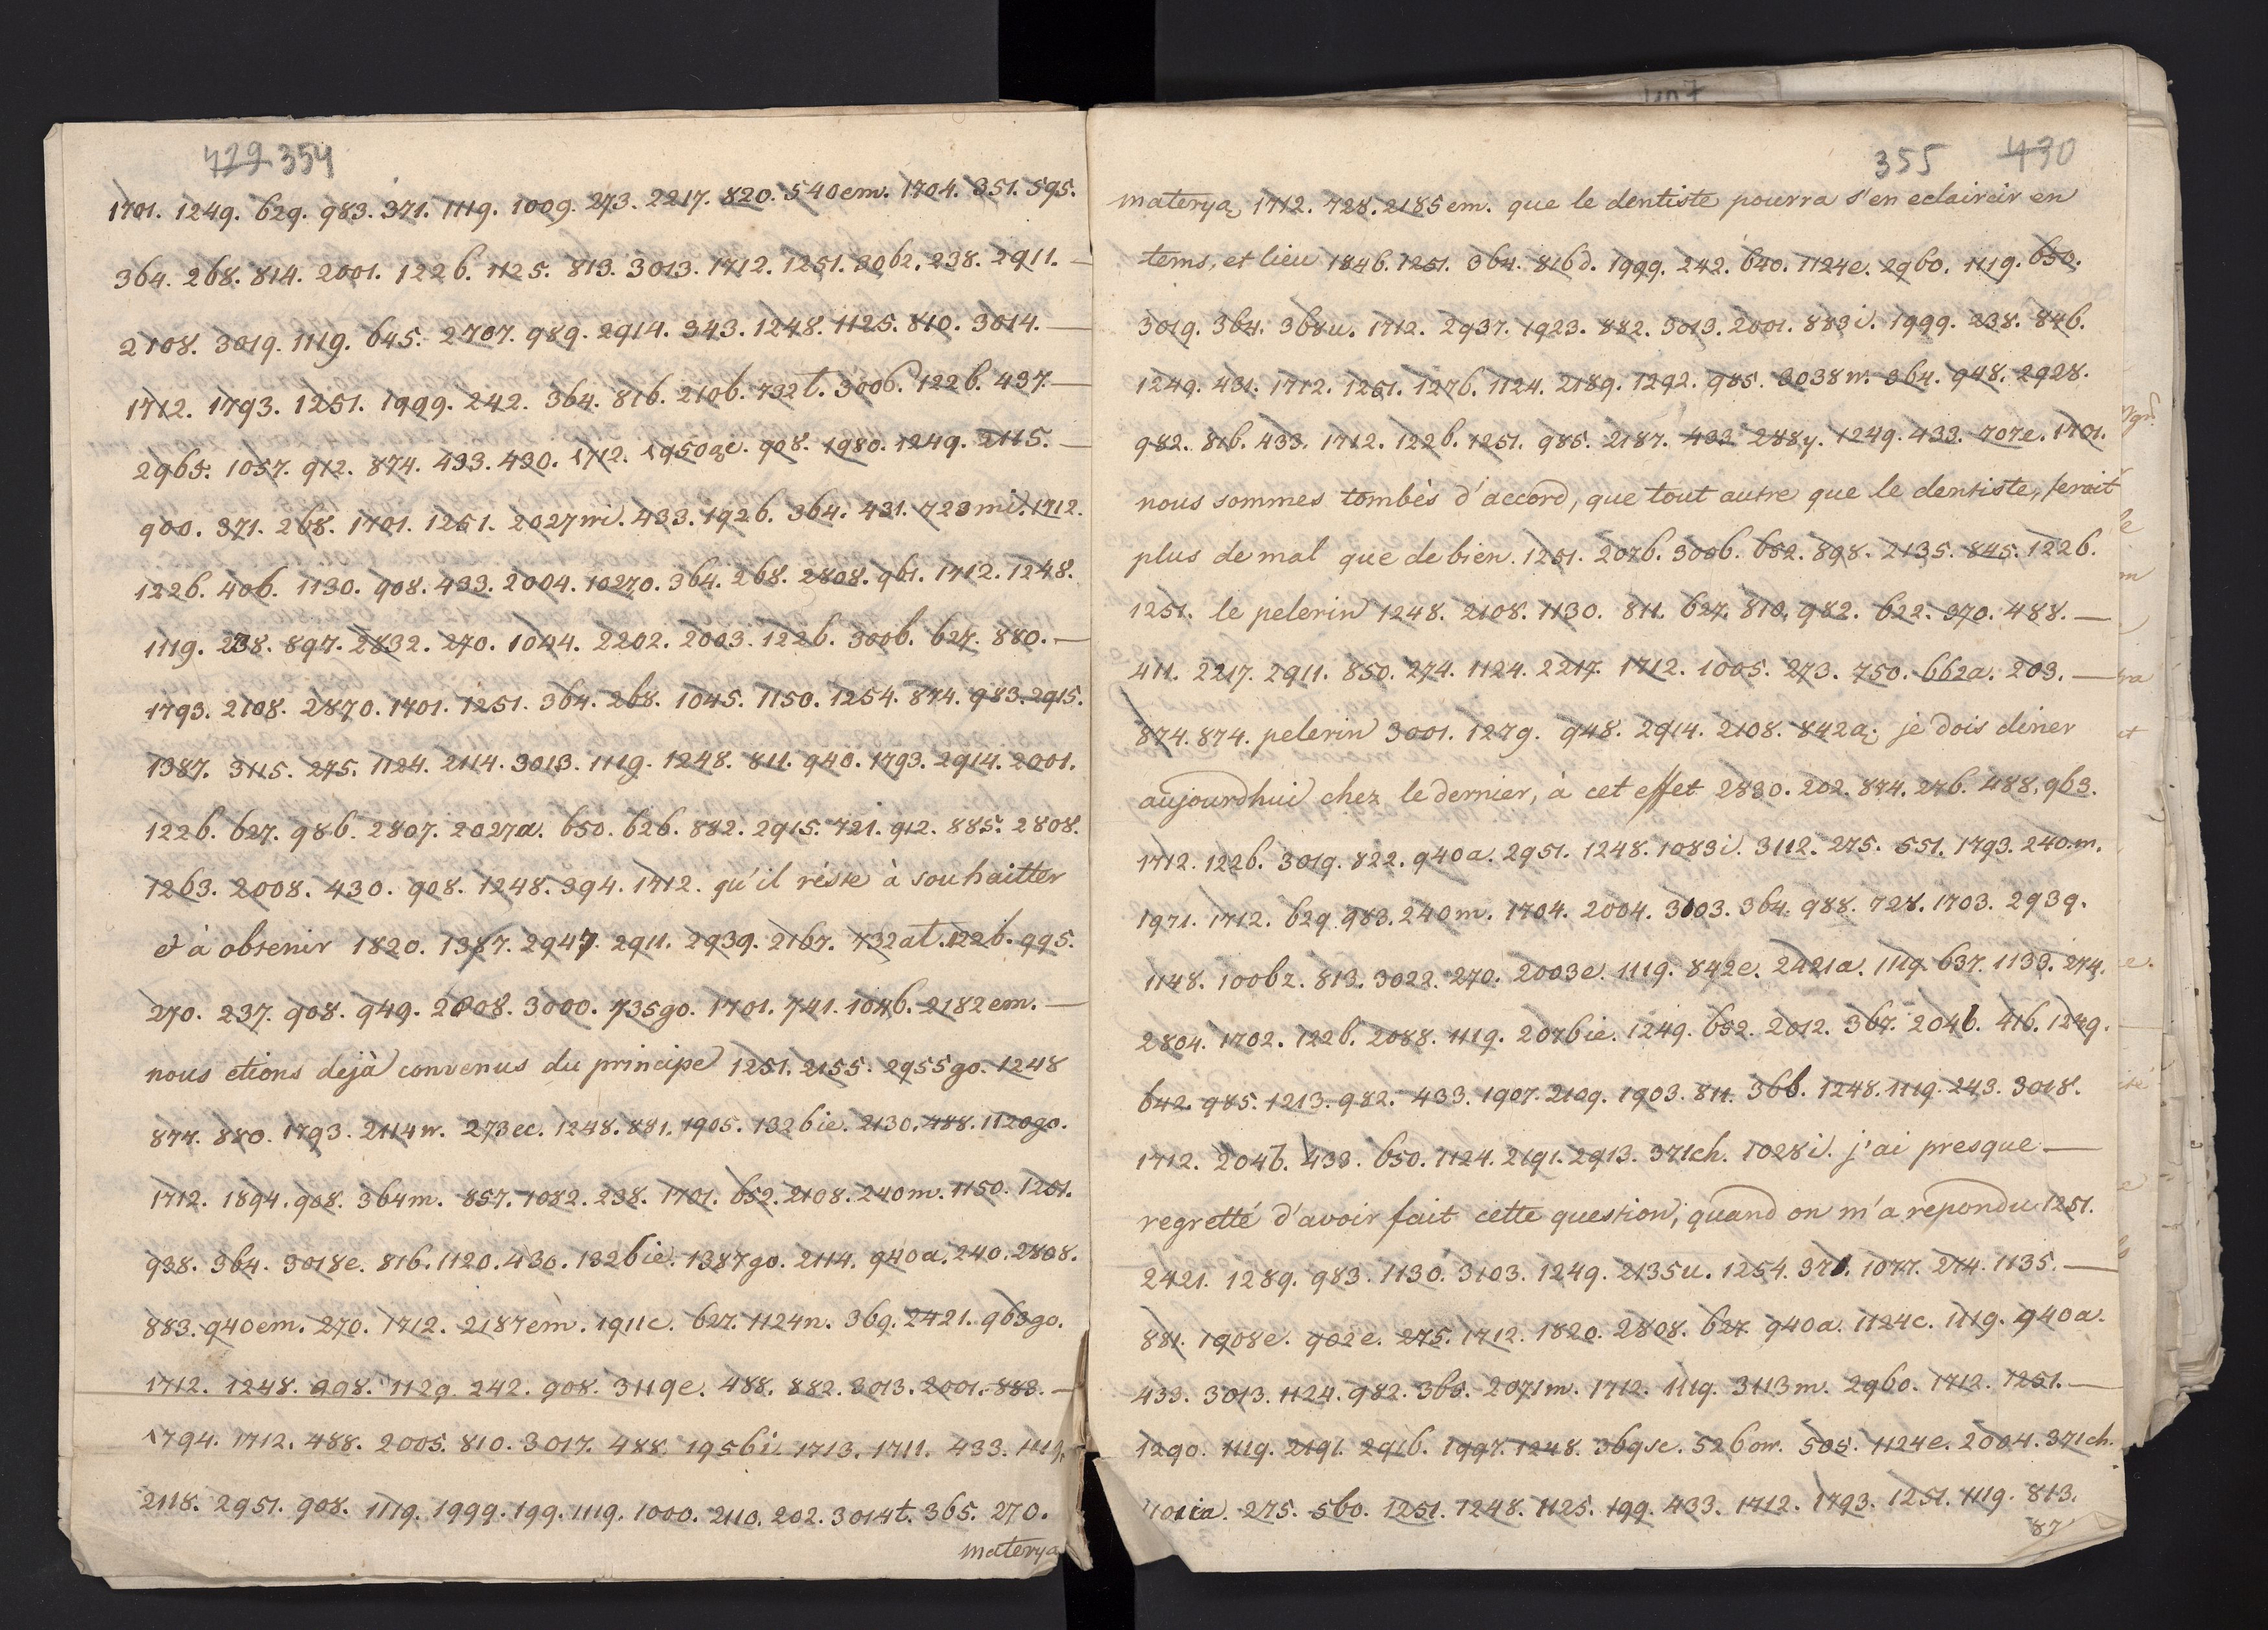 429 354
1701. 1249. 629. 983. 371. 1119. 1009. 273. 2217. 820. 540em. 1704. 351. 595.
364. 268. 814. 2001. 1226. 1125. 813. 3013. 1712. 1251. 3062. 238. 2911. —
2108. 3019. 1119. 645. 2707. 989. 2914. 343. 1248. 1125. 810. 3014. —
1712. 1793. 1251. 1999. 242. 364. 816. 2106. 732t. 3006. 1226. 437. —
2965. 1057. 912. 874. 433. 430. 1712. 1950ge. 908. 1980. 1249. 2115. —
900. 371. 268. 1701. 1251. 2027ni. 433. 1926. 364. 431. 723mi. 1712.
1226. 406. 1130. 908. 433. 2004. 10270. 364. 268. 2808. 961. 1712. 1248.
1119. 238. 897. 2832. 270. 1044. 2202. 2003. 1226. 3006. 627. 880. —
1793. 2108. 2870. 1701. 1251. 364. 268. 1045. 1150. 1254. 874. 983. 2915.
1387. 3115. 275. 1124. 2114. 3013. 1119. 1248. 811. 940. 1793. 2914. 2001.
1226. 627. 986. 2807. 2027a. 650. 626. 882. 2915. 721. 912. 885. 2808.
1263. 2008. 430. 908. 1248. 394. 1712. qu'il réste à souhaitter
et à obtenir 1820. 1387. 2947. 2911. 2939. 2167. 732at. 1226. 995.
270. 237. 908. 949. 2008. 3000. 735go. 1701. 741. 1046. 2182em. —
nous etions dejà convenus du principe 1251. 2155. 2955go. 1248
874. 880. 1793. 2114n. 273ec. 1248. 881. 1905. 1326ie. 2130. 488. 1120go.
1712. 1894. 908. 364m. 857. 1082. 238. 1701. 652. 2108. 240m. 1150. 1251.
938. 364. 3018e. 816. 1120. 430. 1326ie. 1387go. 2114. 940a. 240. 2808.
883. 940em. 270. 1712. 2187em. 1911c. 627. 1124n. 369. 2421. 963go.
1712. 1248. 908. 1129. 242. 908. 3119e. 488. 882. 3013. 2001. 883. —
1794. 1712. 488. 2005. 810. 3017. 488. 1956i. 1713. 1711. 433. 1119.
2118. 2951. 908. 1119. 1999. 199. 1119. 1000. 2110. 202. 3014t. 365. 270.
materya
355 430
materya, 1712. 728. 2185em. que le dentiste pourra s'en eclaircir en
tems, et lieu 1846. 1251. 364. 816d. 1999. 242. 640. 1124e. 2960. 1119. 650.
3019. 364. 368u. 1712. 2937. 1923. 882. 3013. 2001. 883i. 1999. 238. 846.
1249. 431. 1712. 1251. 1276. 1124. 2189. 1292. 985. 3038n. 364. 948. 2928.
982. 816. 433. 1712. 1226. 1251. 985. 2187. 433. 288y. 1249. 433. 707e. 1701.
nous sommes tombès d'accord, que tout autre que le dentiste, ferait
plus de mal que de bien. 1251. 2076. 3006. 652. 898. 2135. 845. 1226.
1251. le pelerin 1248. 2108. 1130. 811. 627. 810. 982. 622. 370. 488. —
411. 2217. 2911. 850. 274. 1124. 2217. 1712. 1005. 273. 750. 662a. 203. —
874. 874. pelerin 3001. 1279. 948. 2914. 2108. 842a; je dois diner
aujourdhui chez le dernier, à cet effet 2830. 202. 874. 276. 488. 963.
1712. 1226. 3019. 822. 940a. 2951. 1248. 1083i. 3112. 275. 551. 1793. 240m.
1971. 1712. 629. 983. 240m. 1704. 2004. 3103. 364. 988. 728. 1703. 2939.
1148. 1006z. 813. 3022. 270. 2003e. 1119. 842e. 2421a. 1119. 637. 1133. 274.
2804. 1702. 1226. 2088. 1119. 2076ie. 1249. 652. 2012. 367. 2046. 416. 1249.
642. 985. 1213. 982. 433. 1907. 2109. 1903. 811. 366. 1248. 1119. 243. 3018.
1712. 2046. 433. 650. 1124. 2191. 2913. 371ch. 1028i. j'ai presque —
regretté d'avoir fait cette question, quand on m'a repondu 1251.
2421. 1289. 983. 1130. 3103. 1249. 2135u. 1254. 370. 1077. 274. 1135. —
881. 1908e. 902e. 275. 1712. 1820. 2808. 627. 940a. 1124c. 1119. 940a.
433. 3013. 1124. 982. 365. 2071m. 1712. 1119. 3113m. 2960. 1712. 1251. —
1290. 1119. 2191. 2916. 1997. 1248. 369se. 526on. 505. 1124e. 2004. 371ch.
275. 560. 1251. 1248. 1125. 199. 433. 1712. 1793. 1251. 1119. 813.
87